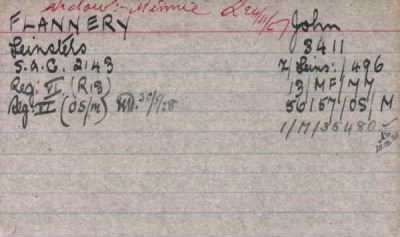 Widow:- Minnie 2
FLANNERY John
Leinsters 3411
S.A.C. 2143 7/Leins:/496
Reg: VI (R13) 13/MF/MM
Reg: VI (OS/M) 56/57/OS/M
1/M/35480